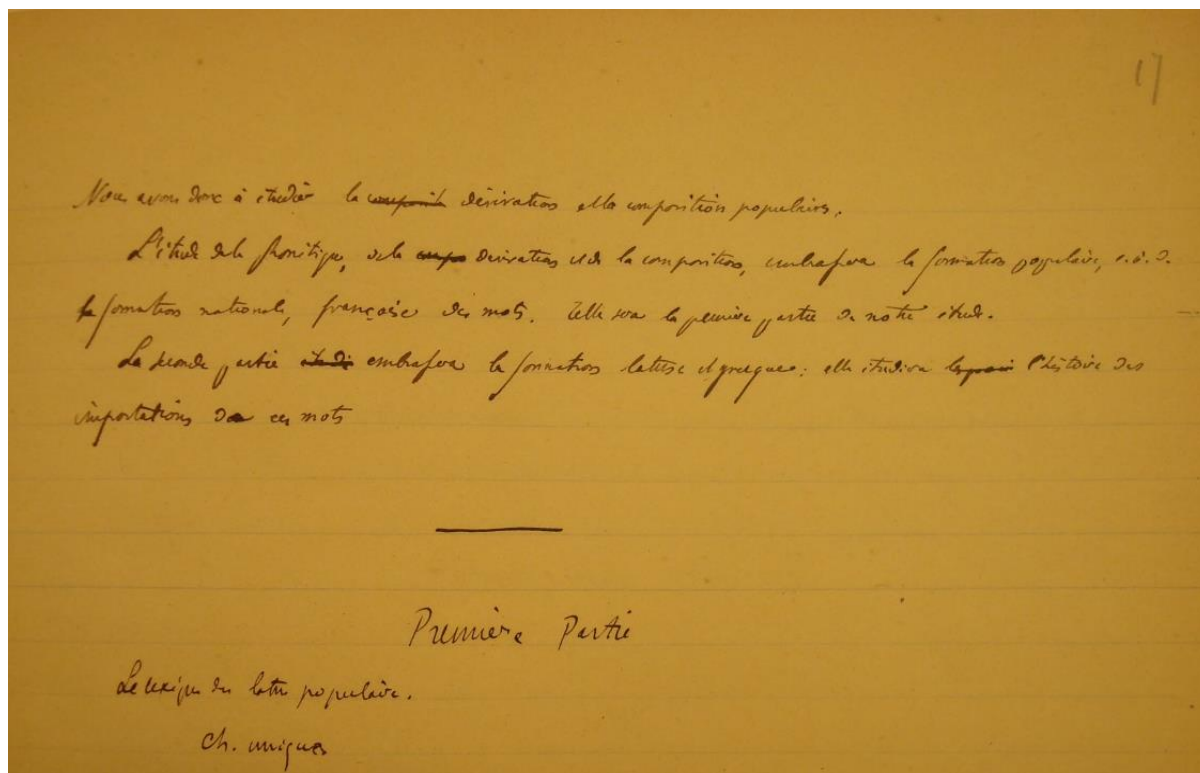 17
Nous avons donc à étudier la ~~composit~~ dérivation et la composition populaires.
L'étude de la phonétique, de la ~~compo~~ dérivation et de la composition, embrassera la formation populaire, c. à. d.
la formation nationale, française des mots. Telle sera la première partie de notre étude.
La seconde partie ~~étudi~~ embrassera la formation latine et grecque ; elle étudiera l'histoire des
importations de ces mots
Première Partie
Le lexique du latin populaire.
Ch. unique